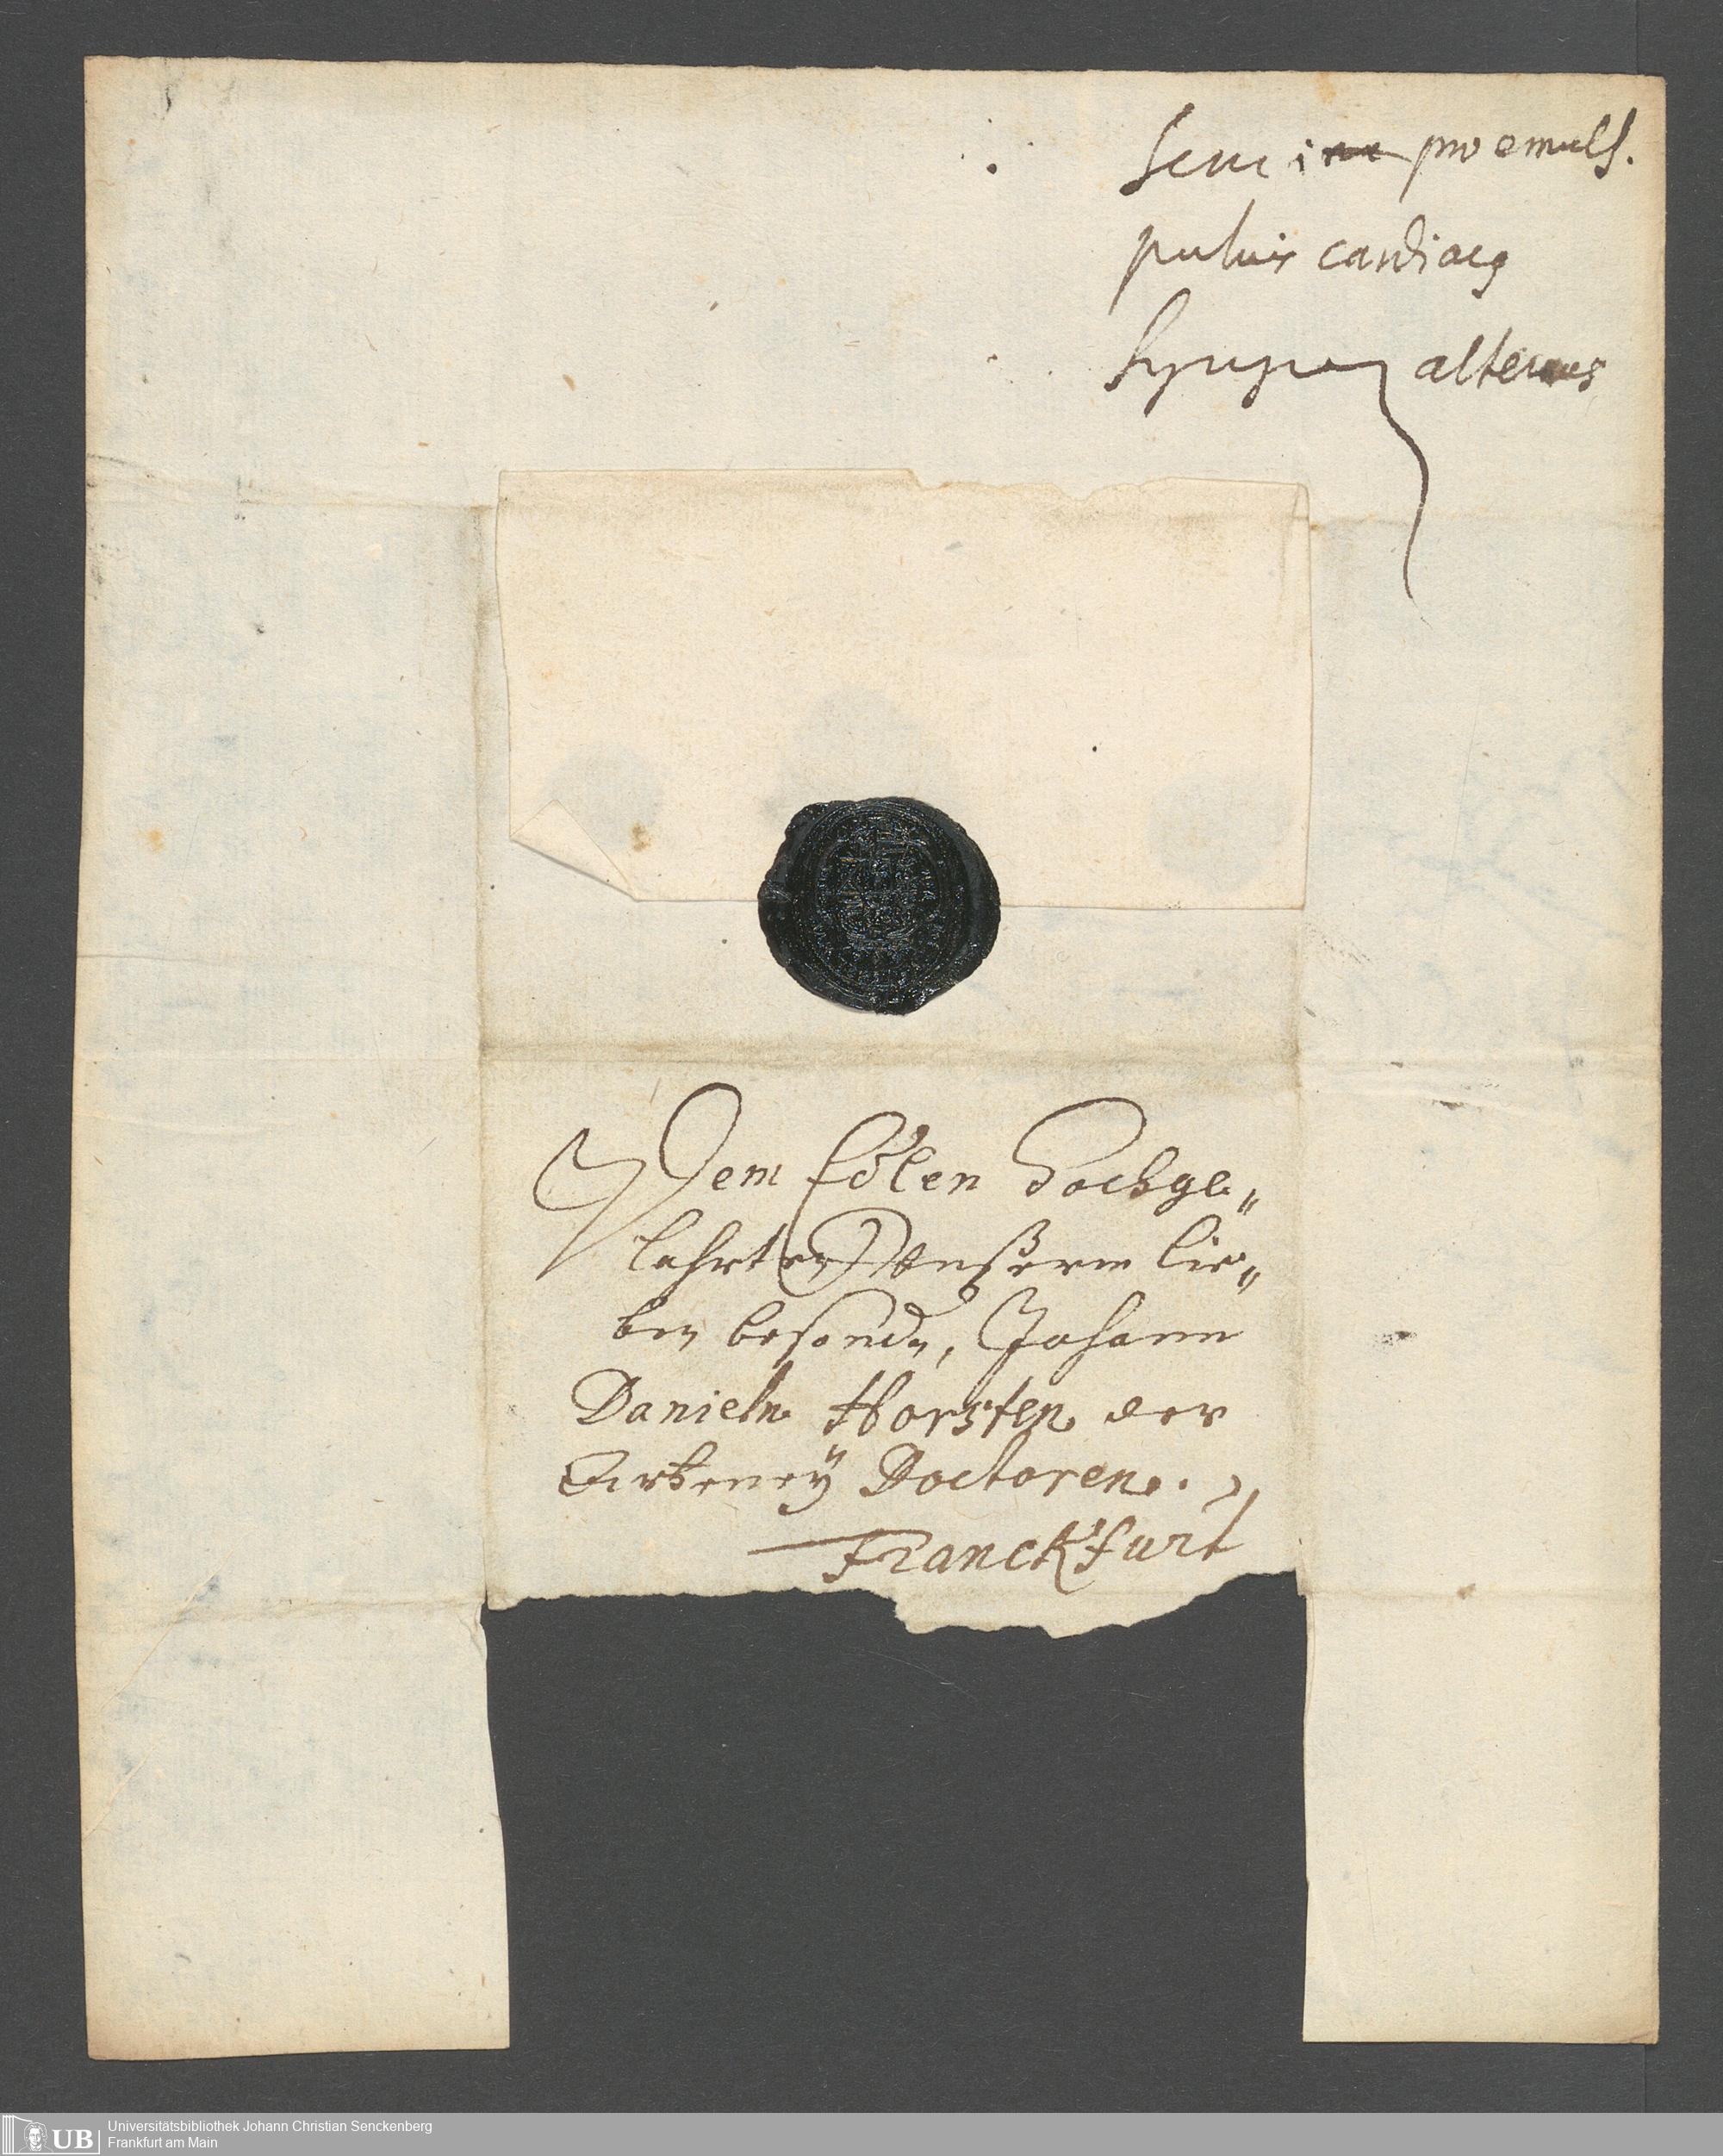 Semina pro emuls.
pulvis cardiacg
Syrupus alterans
Dem Edlen Hochge„
lehrten Unßerm lie„
ben besondn, Johann
Danieln Horsten der
Artzeneÿ Doctoren.
Franckfurt
UB
Universitätsbibliothek Johann Christian Senckenberg
Frankfurt am Main